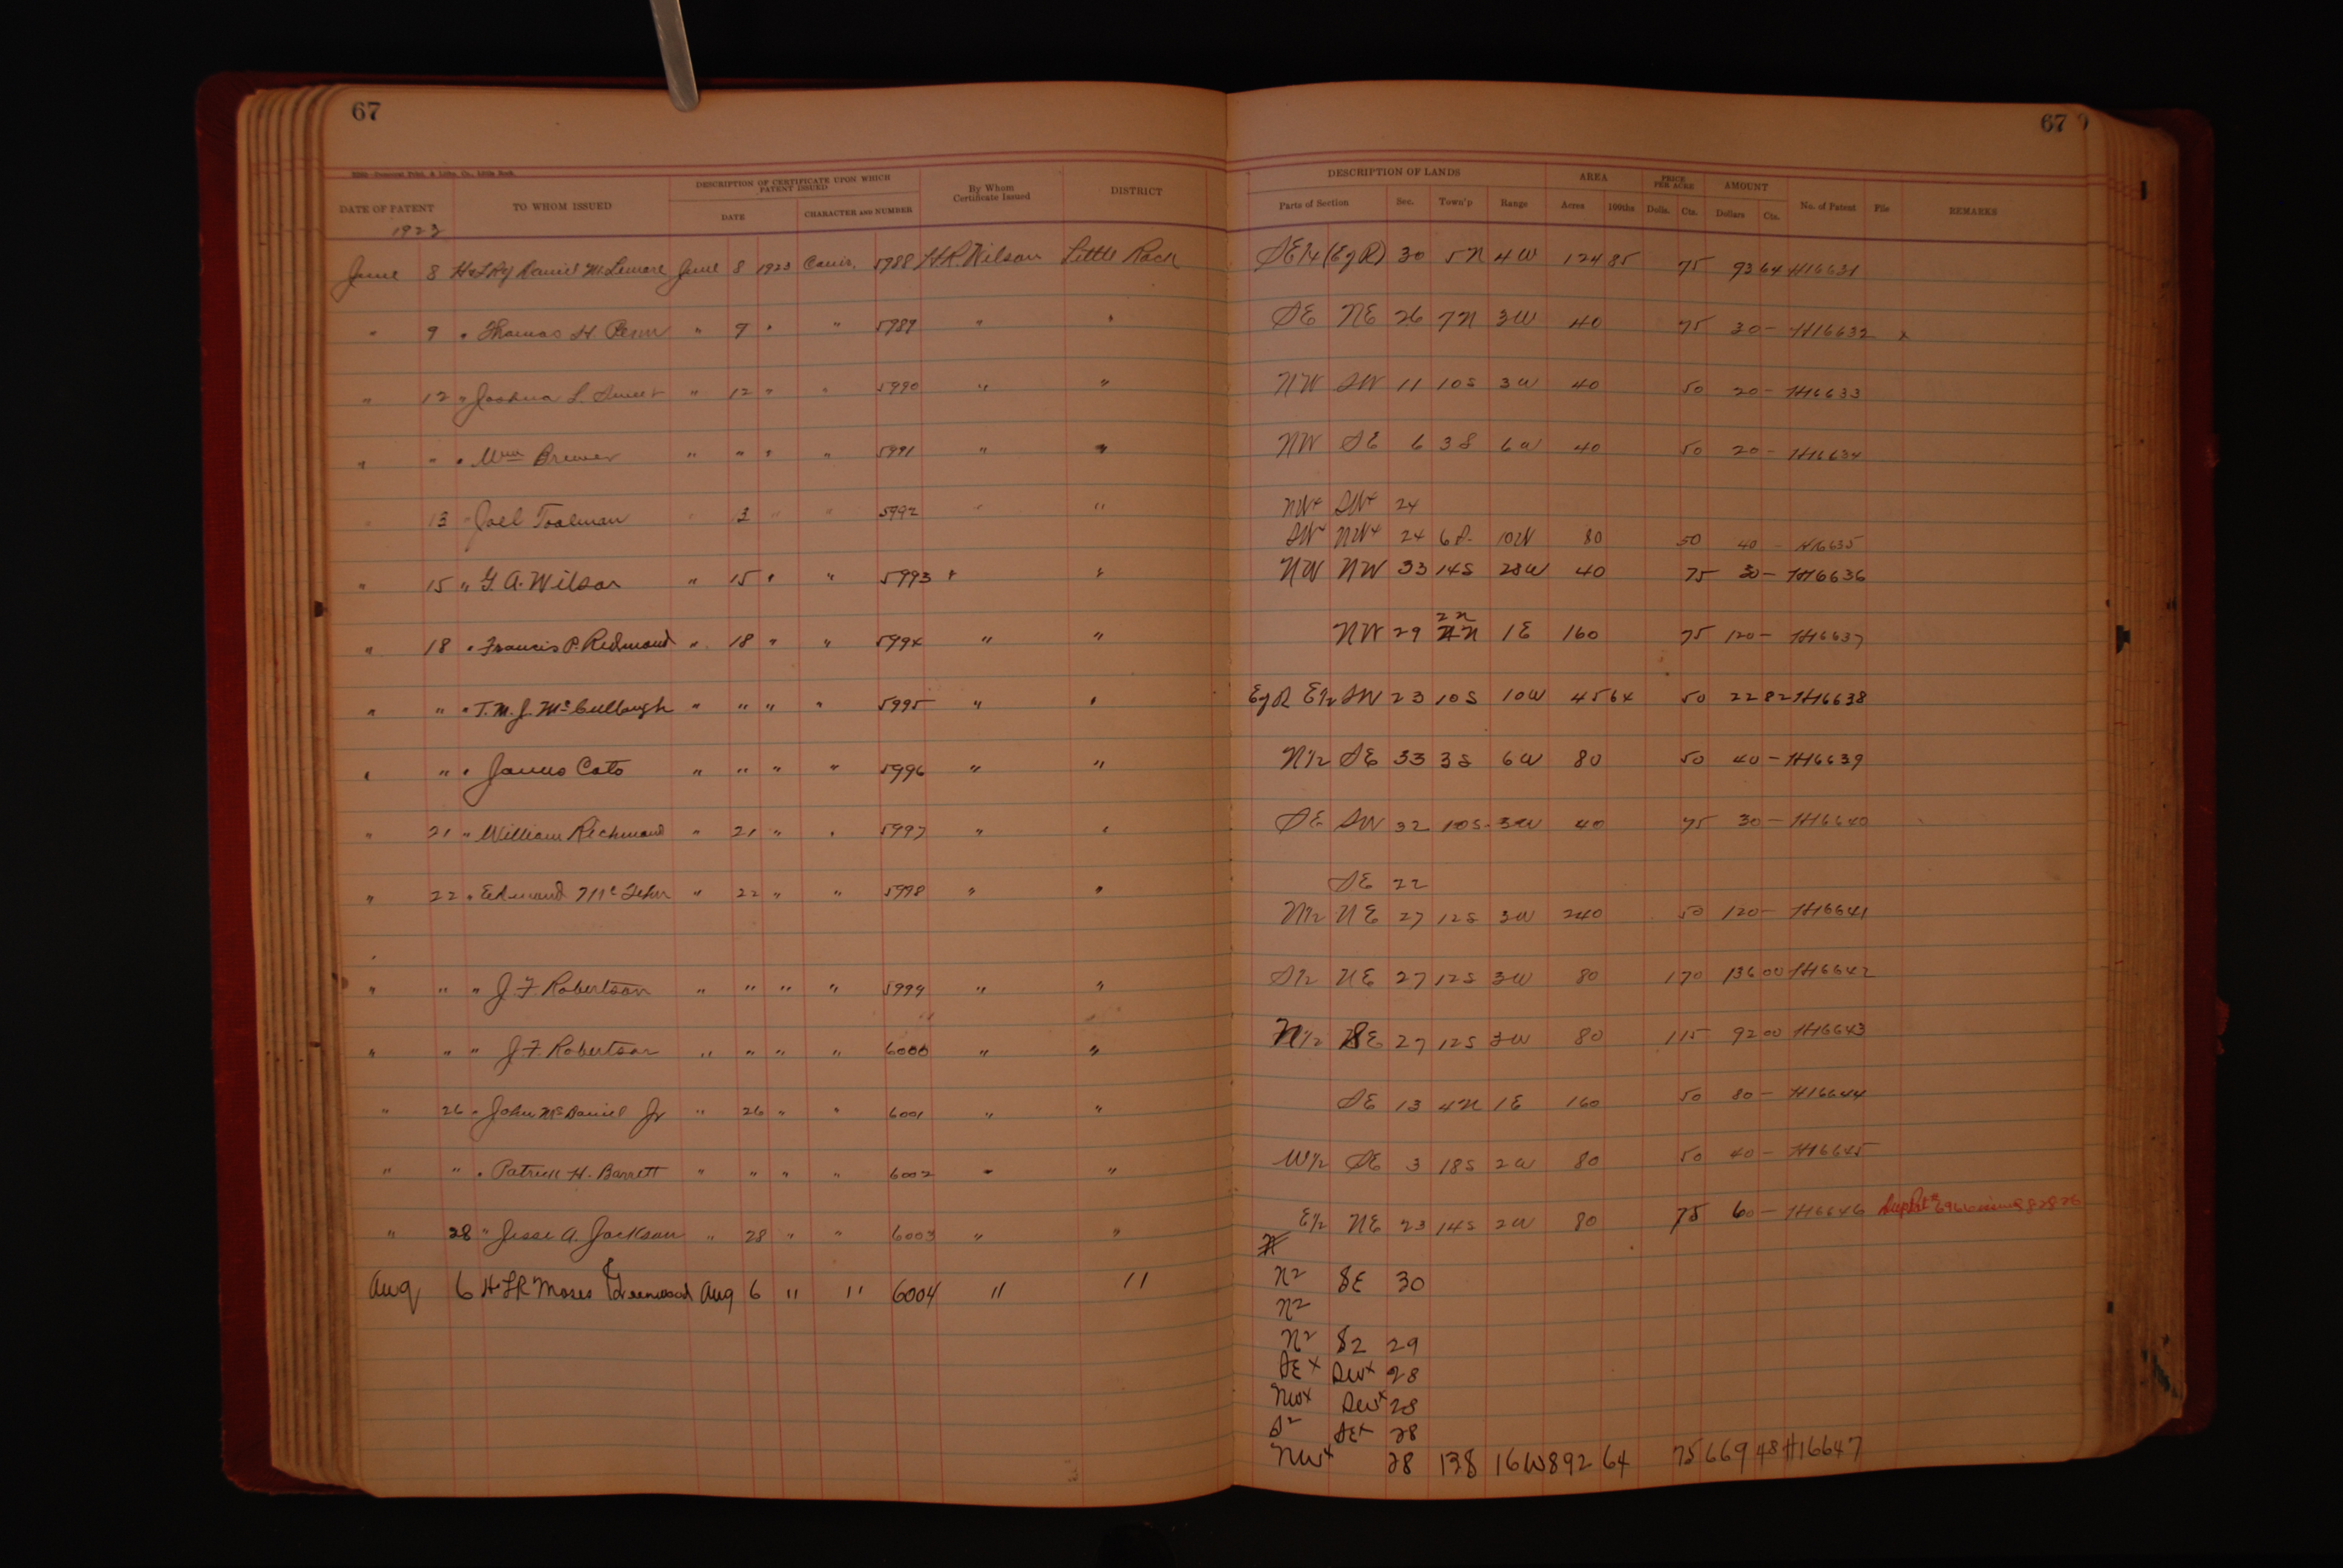 67
67
DESCRIPTION OF CERTIFICATE UPON WHICH PATENT ISSUED
DESCRIPTION OF LANDS AREA PRICE PER ACRE AMOUNT
DATE OF PATENT TO WHOM ISSUED DATE CHARACTER AND NUMBER By Whom Certificate Issued DISTRICT
Parts of Section Sec. Town'p Range Acres 100ths Dolls. Cts. Dollars Cts. No. of Patent File REMARKS
1923
June 8 Daniel McLemore June 8 1923 5988 H.R. Wilson Little Rock SE1/4 30 5N 4W 124 85 75 93 64 H16631
" 9 " Thomas H. " 9 " " 5989 " " SE NE 26 7N 3W 40 75 30 - H16632 x
" 12 " Joshua L. " 12 " " 5990 " " NW SW 11 10S 3W 40 50 20 - H16633
" " " Wm Brewer " " " " 5991 " " NW SE 6 3S 6W 40 50 20 - H16634
" 13 " Joel Toolman " 13 " " 5992 " " NW4 SW4 24
SW4 NW4 24 6S 10W 80 50 40 - H16635
" 15 " G.A. Wilson " 15 " " 5993 " " NW NW 33 14S 28W 40 75 30 - H16636
" 18 " Francis P. Redmond " 18 " " 5994 " " NW 29 2N 1E 160 75 120 - H16637
" " " T.M.J. McCullough " " " " 5995 " " E1/2 SW 23 10S 10W 45 64 50 22 82 H16638
" " " James Cato " " " " 5996 " " N1/2 SE 33 3S 6W 80 50 40 - H16639
" 21 " William Richmond " 21 " " 5997 " " SE SW 32 10S 3W 40 75 30 - H16640
" 22 " Edmund " 22 " " 5998 " " SE 22
N1/2 NE 27 12S 3W 240 50 120 - H16641
" " " J.F. Robertson " " " " 5999 " " S1/2 NE 27 12S 3W 80 170 136 00 H16642
" " " J.F. Robertson " " " " 6000 " " N1/2 SE 27 12S 3W 80 115 92 00 H16643
" 26 " John McDaniel Jr " 26 " " 6001 " " SE 13 4N 1E 160 50 80 - H16644
" " " Patrick H. Barrett " " " " 6002 " " W1/2 SE 3 18S 2W 80 50 40 - H16645
" 28 " Jesse A. Jackson " 28 " " 6003 " " E1/2 NE 23 14S 2W 80 75 60 - H16646
Aug 6 Moses Greenwood Aug 6 " " 6004 " " N2 SE 30
N2
N2 S2 29
SE4 SW4 28
NW4 SW4 28
S2 SE4 28
NW4 28 13S 16W 892 64 75 669 48 H16647